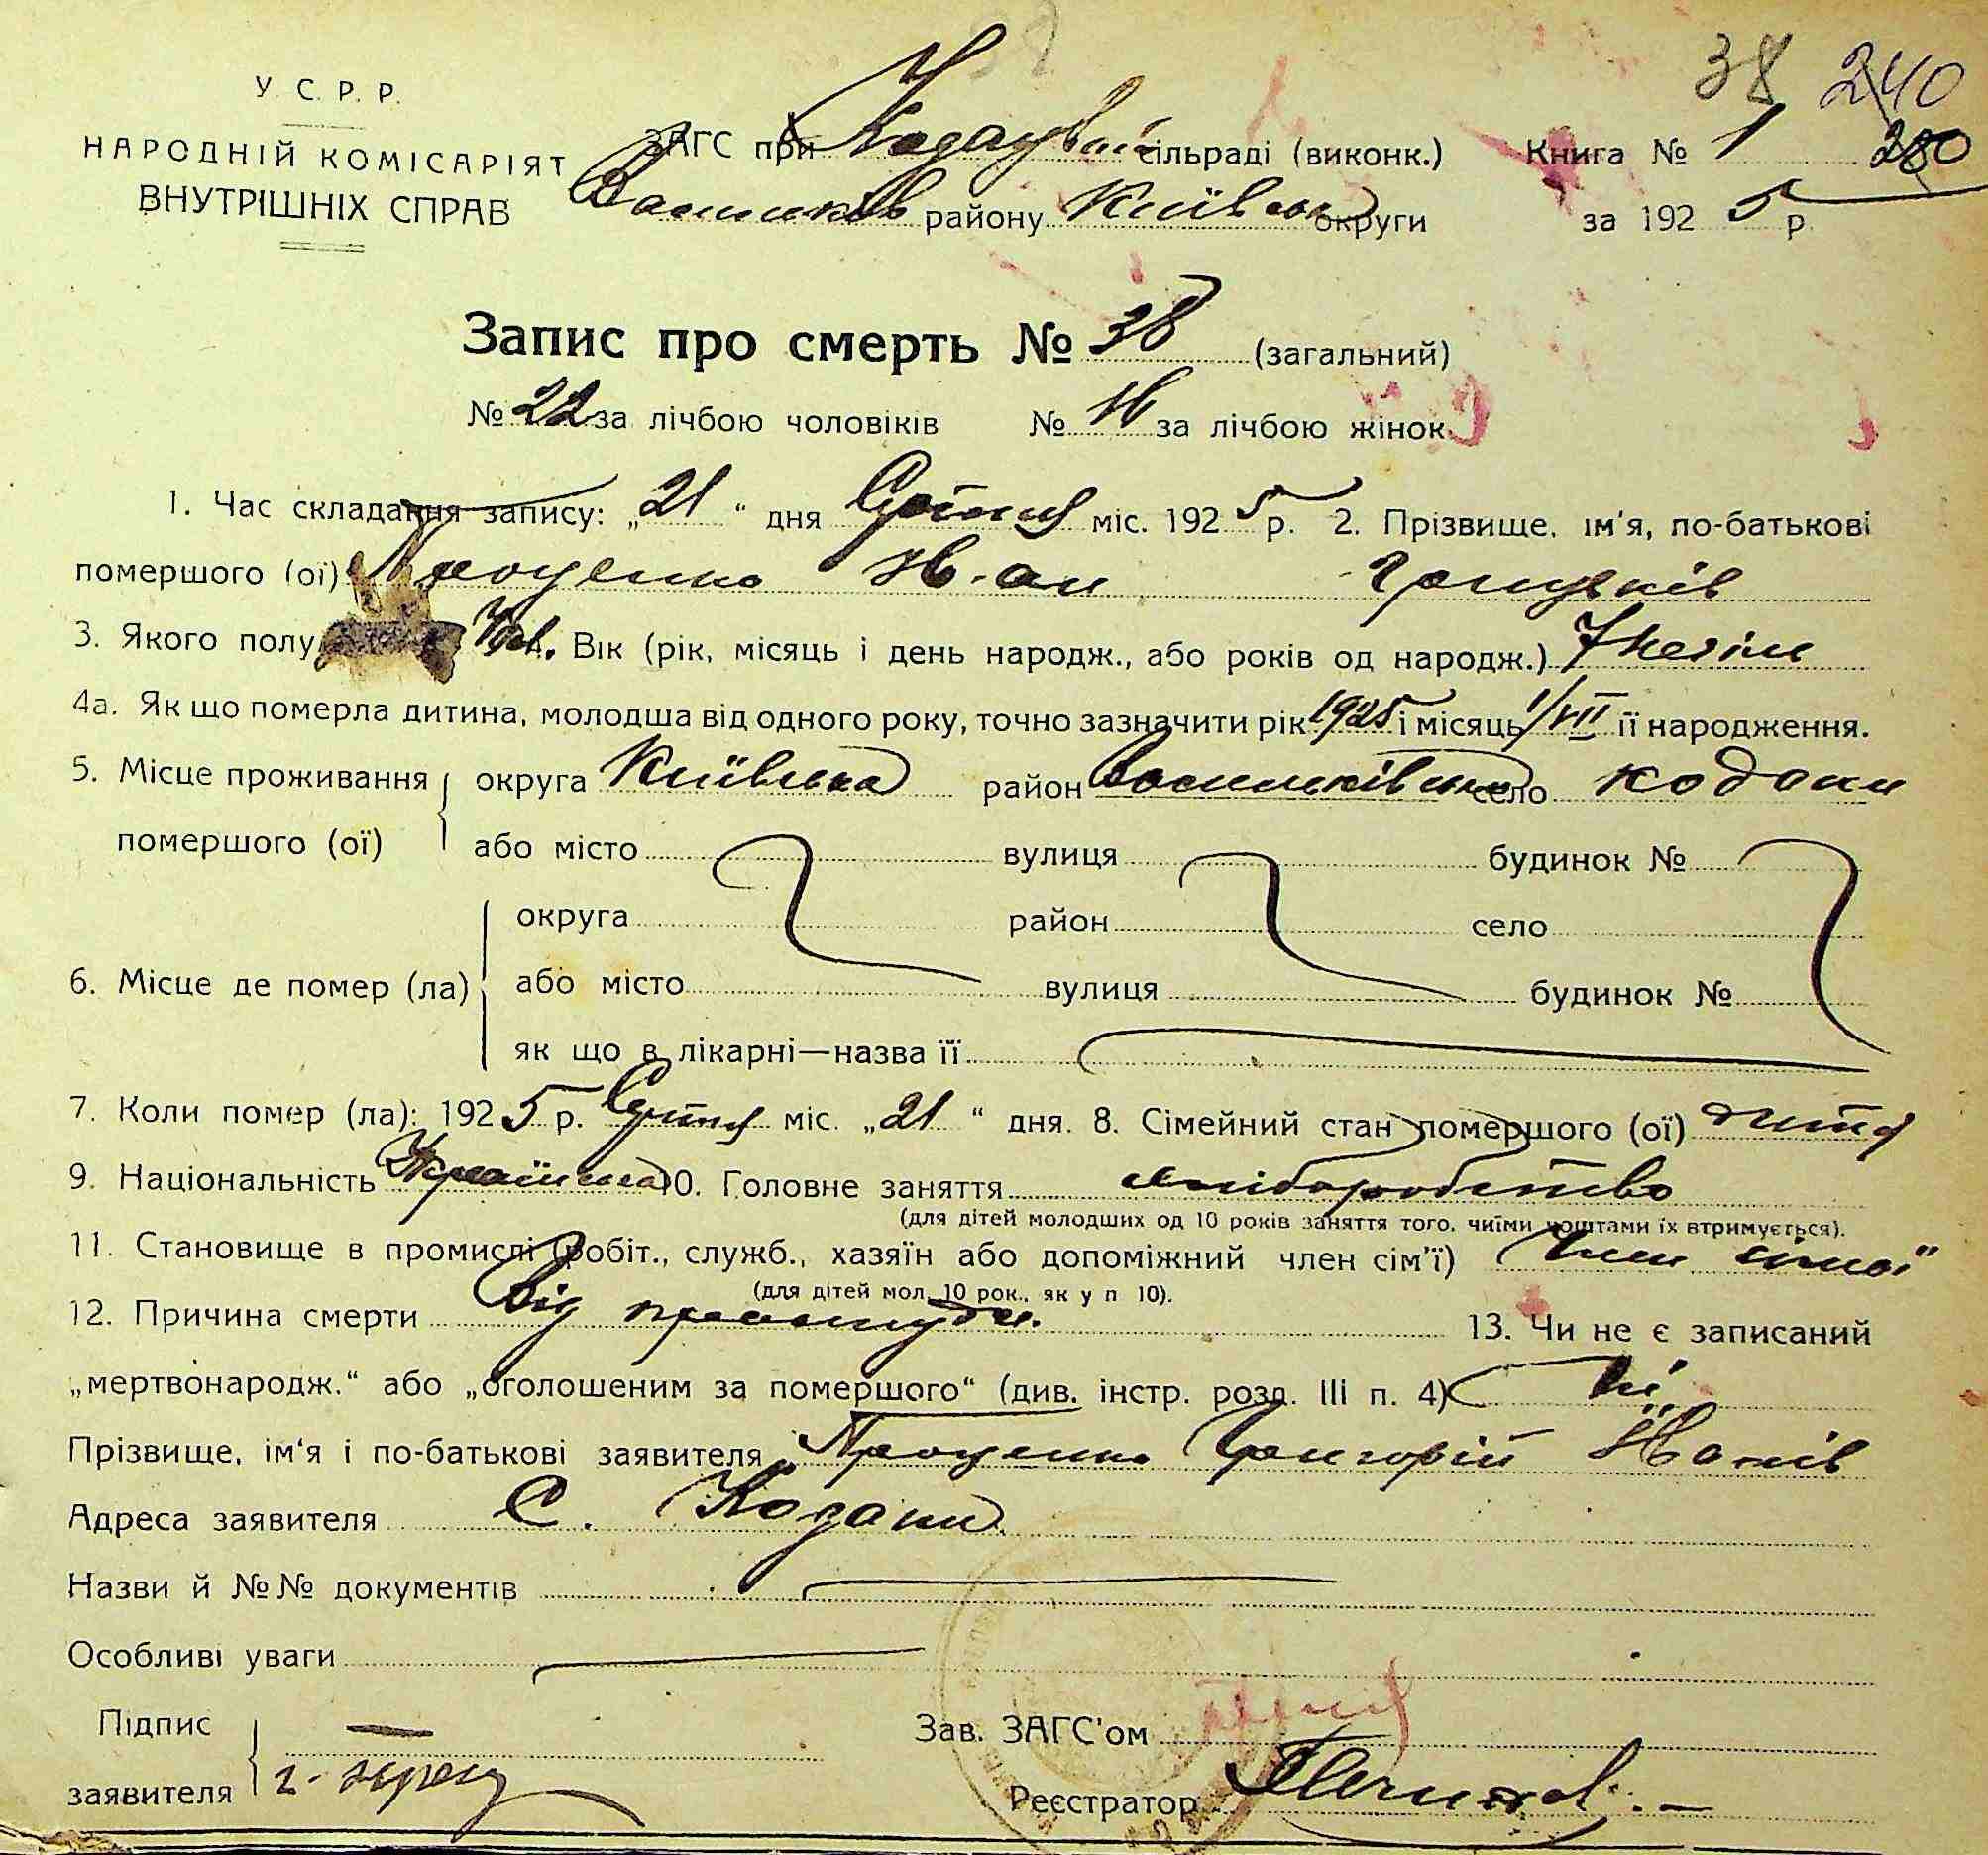 38 240
У. С. Р. Р.
НАРОДНІЙ КОМІСАРІЯТ
ВНУТРІШНІХ СПРАВ
ЗАГС при сільраді (виконк.)
району Київськ округи
Книга № 1
за 192 5 р.
Запис про смерть № 38 (загальний)
№ 22 за лічбою чоловіків № 16 за лічбою жінок
1. Час складання запису: „21“ дня Серпня міс. 192 5 р. 2. Прізвище, ім'я, по-батькові
помершого (ої) Проценко Ів-ан Грицьків
3. Якого полу Чол. Вік (рік, місяць і день народж., або років од народж.) 7 неділь
4а. Як що померла дитина, молодша від одного року, точно зазначити рік 1925 і місяць 1/VII її народження.
5. Місце проживання округа Київська район Васильківськ село Кодаки
помершого (ої) або місто вулиця будинок №
округа район село
6. Місце де помер (ла) або місто вулиця будинок №
як що в лікарні—назва її
7. Коли помер (ла): 192 5 р. Серпня міс. „21“ дня. 8. Сімейний стан помершого (ої) дитя
9. Національність Українська 10. Головне заняття хліборобство
(для дітей молодших од 10 років заняття того, чиїми коштами їх втримується).
11. Становище в промислі (робіт., служб., хазяїн або допоміжний член сім'ї) Член сімї
(для дітей мол. 10 рок., як у п 10).
12. Причина смерти Від простуди. 13. Чи не є записаний
„мертвонародж.“ або „оголошеним за помершого“ (див. інстр. розд. III п. 4) Ні
Прізвище, ім'я і по-батькові заявителя Проценко Григорій Іванів
Адреса заявителя С. Кодаки
Назви й №№ документів
Особливі уваги
Підпис
заявителя
Зав. ЗАГС'ом
Реєстратор